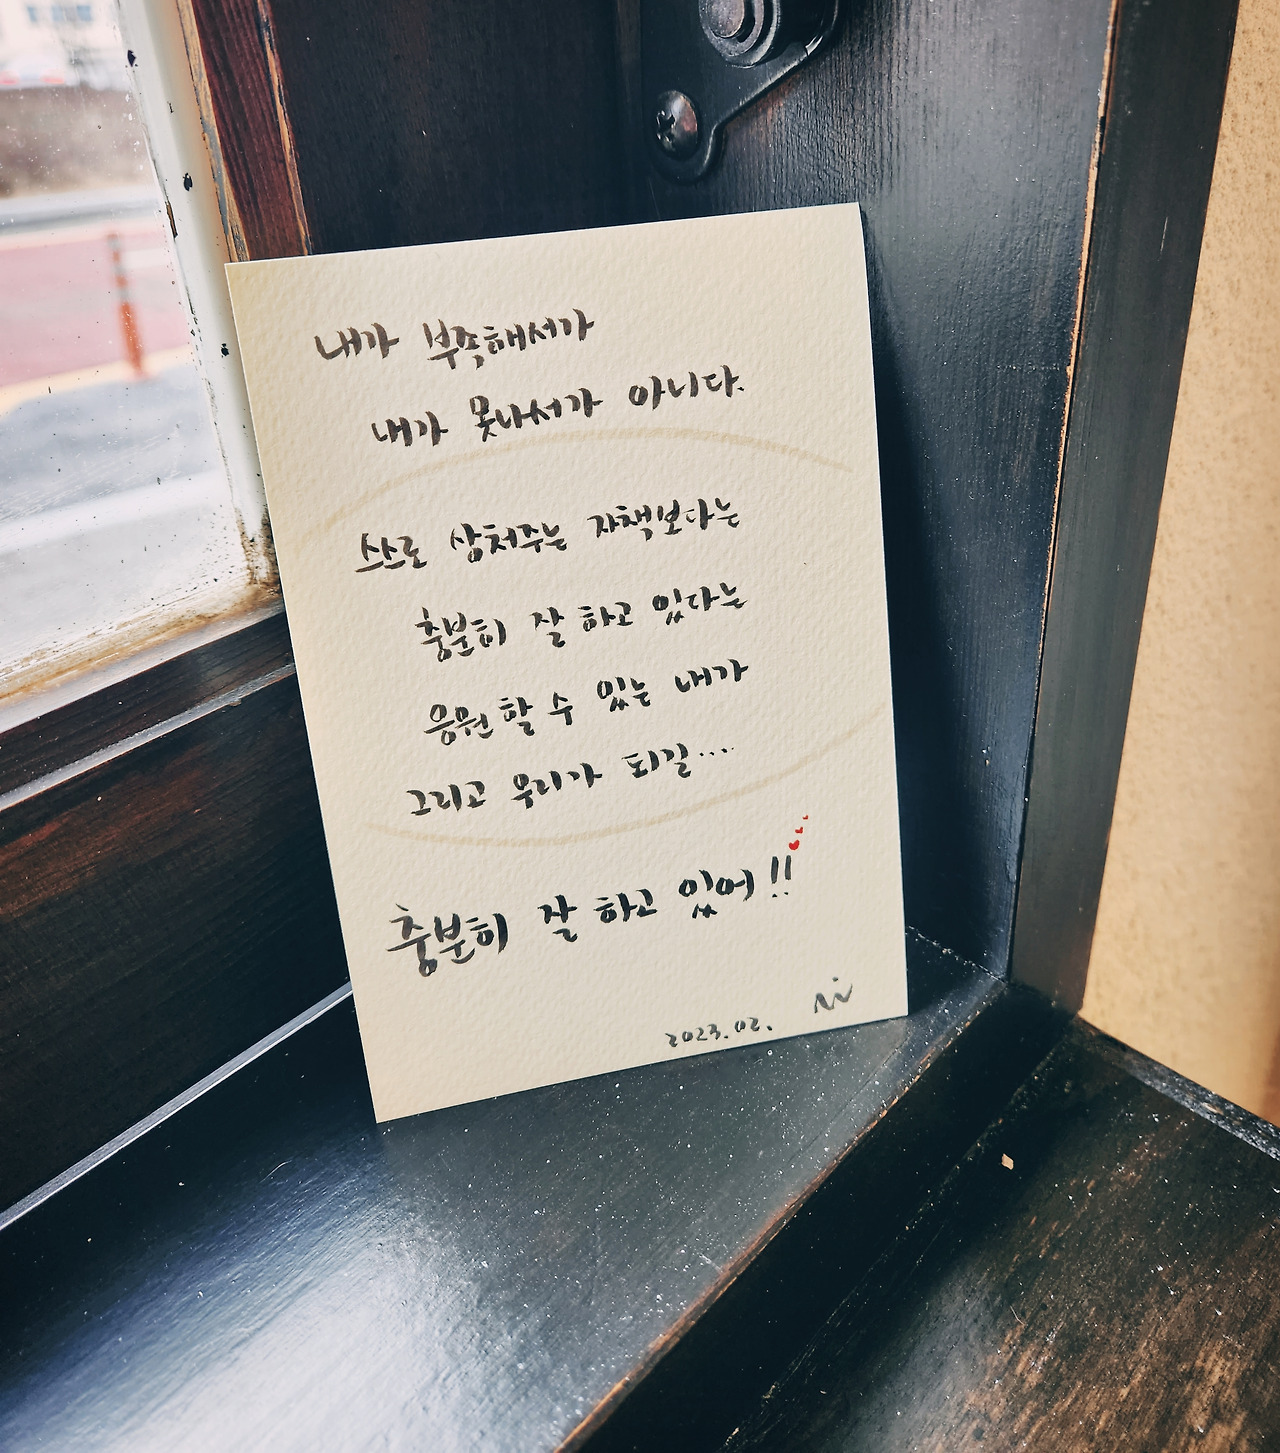 내가 부족해서가
내가 못나서가 아니다.
스스로 상처주는 자책보다는
충분히 잘 하고 있다는
응원 할 수 있는 내가
그리고 우리가 되길....
충분히 잘 하고 있어!!
2023.02.